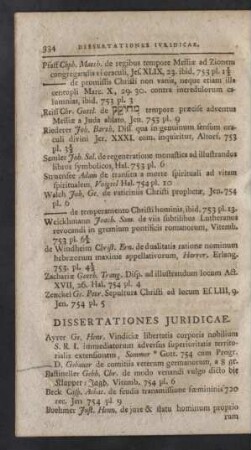 334 DISSERTATIONES IVRIDICAE.
Pfaff Chph. Matth. de regibus tempore Messiæ ad Zionem
congregandis ei oraculi, Jes XLIX, 23. ibid. 753 pl 1½
—— de promissis Christi non vanis, neque etiam illa
centupli Marc. X, 29. 30. contra introdulorum ca-
lumnias, ibid. 753 pl. 3
Reis Chr. Gottl. de מחוקק tempore præcise adventus
Messiæ a Juda ablato, Jen. 753 pl. 9
Riederer Joh. Barth. Disp. qua in genuinum sensum ora-
culi divini Jer. XXXI. com. inquiritur, Altorf. 753
pl. 3½
Semler Joh. Sal. de regeneratione monastica ad illustrandos
libros symbolicos, Hal. 753 pl. 6
Struensee Adam de transitu a morte spirituali ad vitam
spiritualem, Voigtel Hal. 754 pl. 10
Walch Joh. Ge. de vaticiniis Christi prophetæ, Jen. 754
pl. 6
—— de temperamento Christi hominis, ibid. 753 pl. 13.
Weickhmann Joach. Sam. de viis subtilibus Lutheranos
revocandi in gremium pontificis romanorum, Vitemb.
753 pl. 6½
de Windheim Christ. Ern. de dualitatis ratione nominum
hebræorum maxime appellativorum, Horrer. Erlang.
759. pl. 4½
Zachariæ Gotth. Traug. Disp. ad illustrandum locum Act.
XVII, 26. Hal. 754 pl. 4
Zenckel Ge. Petr. Sepultura Christi ad locum Es. LIII, 9.
Jen. 754 pl. 5
DISSERTATIONES JURIDICAE.
Ayrer Ge. Henr. Vindiciæ libertatis corporis nobilium
S. R. I. immediatorum adversus superioritatis territo-
rialis extensionem, Sommer * Gott. 754 cum Progr.
D. Gebauer de comitiis veterum germanorum, a 8 gr.
Bastineller Gebh. Chr. de modo venandi vulgo dicto die
Klapper-Jagd. Vitemb. 754 pl. 6
Beck Casp. Achat. de feudis transmissione fœmininis 720
rec. Jen 754 pl. 9
Boehmer Just. Henn. de jure & statu hominum proprio-
rum